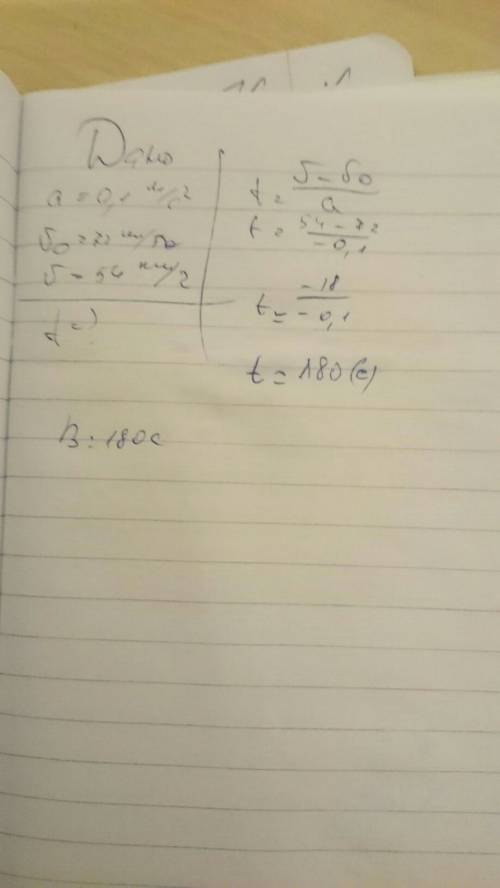 Дано
a = 0,1 м/с²
v₀ = 72 км/год
v = 54 км/г
t = ?
t = v - v₀ / a
t = 54 - 72 / -0,1
t = -18 / -0,1
t = 180 (с)
В: 180с